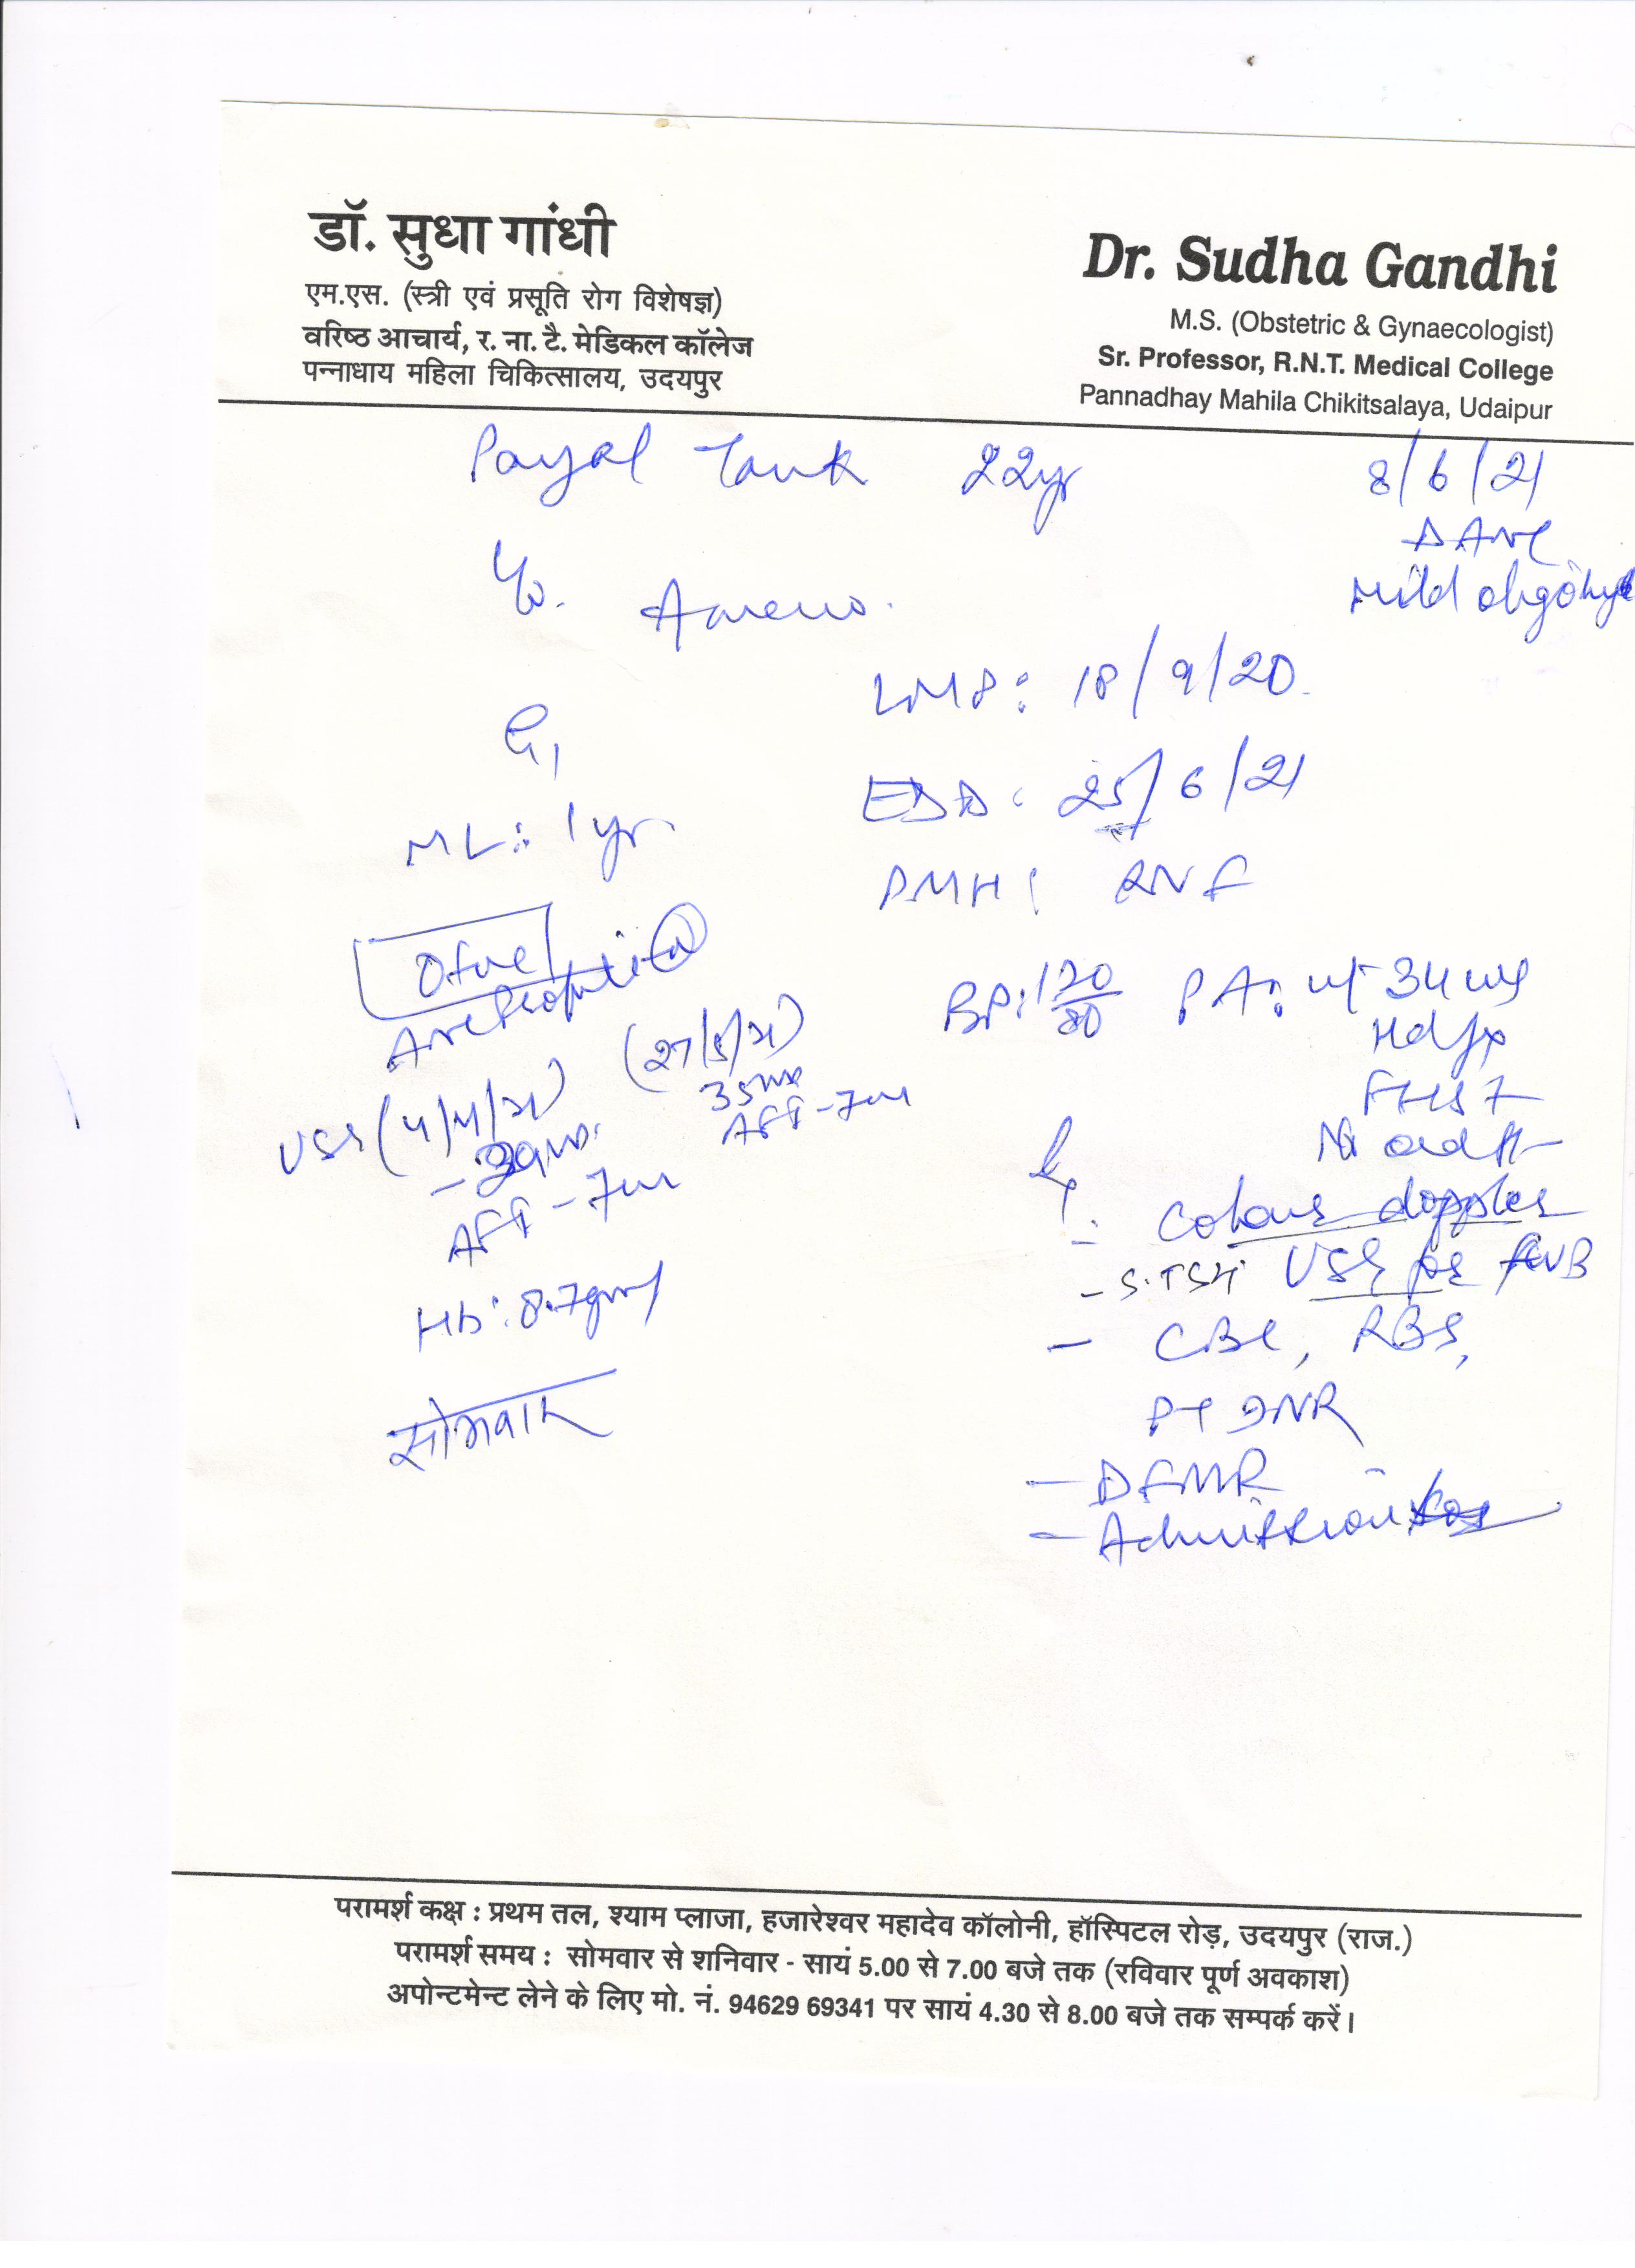 डॉ. सुधा गांधी
एम.एस. (स्त्री एवं प्रसूति रोग विशेषज्ञ)
वरिष्ठ आचार्य, र. ना. टै. मेडिकल कॉलेज
पन्नाधाय महिला चिकित्सालय, उदयपुर
Dr. Sudha Gandhi
M.S. (Obstetric & Gynaecologist)
Sr. Professor, R.N.T. Medical College
Pannadhay Mahila Chikitsalaya, Udaipur
Payal Tank 22yr
8/6/21
Mild
LMP: 18/9/20
G1
EDD: 25/6/21
ML: 1yr
PMH:
O+ve
ANC Profile
BP: 120/80 PA: ut 34 wks
(27/5/21)
35wks
AFI - 7cm
USG
AFI - 7cm
Hb: 8.7gm
सोमवार
Colour doppler
- S.TSH USG for
- CBC, RBS,
PT INR
- DFMR
- Admission
परामर्श कक्ष : प्रथम तल, श्याम प्लाजा, हजारेश्वर महादेव कॉलोनी, हॉस्पिटल रोड़, उदयपुर (राज.)
परामर्श समय : सोमवार से शनिवार - सायं 5.00 से 7.00 बजे तक (रविवार पूर्ण अवकाश)
अपोन्टमेन्ट लेने के लिए मो. नं. 94629 69341 पर सायं 4.30 से 8.00 बजे तक सम्पर्क करें।